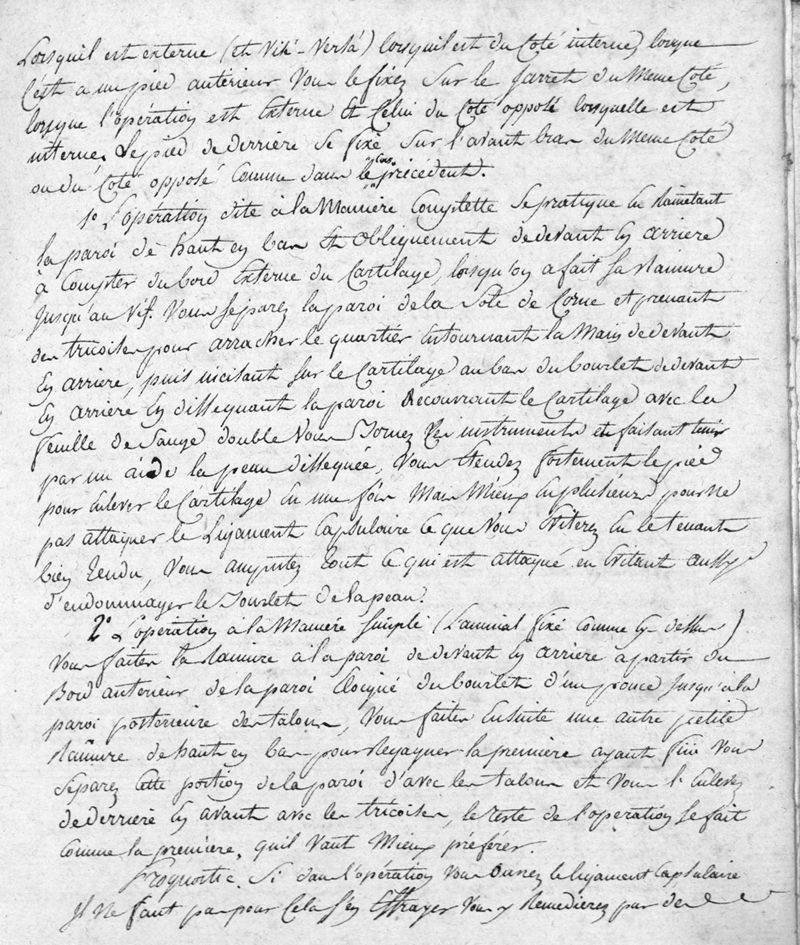 Lorsquil est externe (et Vice-Versá) lorsquil est du Coté interne, lorsque
C'est a un pied antérieur Vous le fixez Sur le Jarret du Meme Coté,
lorsque l'opération est Externe Et Celui du Coté opposé lorsquelle est
interne. Le pied de derrière Se fixe Sur l'avant bras du Meme Coté
ou du Coté opposé Comme dans le Cas précédent.
1º L'opération dite à la Maniere Complette Se pratique En Rainetant
la paroi de haut en bas Et Obliquement de devant En arriere
à Compter du bord Externe du Cartilage, lorsqu'on a fait sa Rainure
Jusqu'au Vif. Vous Séparez la paroi de la Sole de Corne et prenant
des tricoises pour arracher le quartier En tournant la Main de devant
En arriere, puis incisant Sur le Cartilage au bas du bourlet de devant
En arriere En dissequant la paroi Recouvrant le Cartilage avec la
feuille de Sauge double Vous instruments et faisant tenir
par un aide la peau dissequée, Vous tendez fortement le pied
pour Enlever le Cartilage En une fois Mais Mieux En plusieurs pour Ne
pas attaquer le Ligament Capsulaire Ce que Vous Eviterez En le tenant
bien tendu, Vous amputez tout Ce qui est attaqué en Evitant aussy
d'endommager le Bourlet de la peau.
2º L'opération à la Maniere Simple (L'animal fixé Comme Cy-dessus)
Vous faites la Rainure à la paroi de devant En arriere à partir du
Bord anterieur de la paroi Eloigné du bourlet d'un pouce Jusqu'à la
paroi posterieure des talons, Vous faites Ensuite une autre petite
Rainure de haut en bas pour la première ayant fini Vous
Separez Cette portion de la paroi d'avec les talons et Vous l'Enlevez
de derriere En avant avec les tricoises, le reste de l'opération Se fait
Comme la première, quil Vaut Mieux préférer.
Prognostic. Si dans l'opération Vous Ouvrez le ligament Capsulaire
Il Ne faut pas pour Cela S'en Effrayer Vous y Remedierez par des